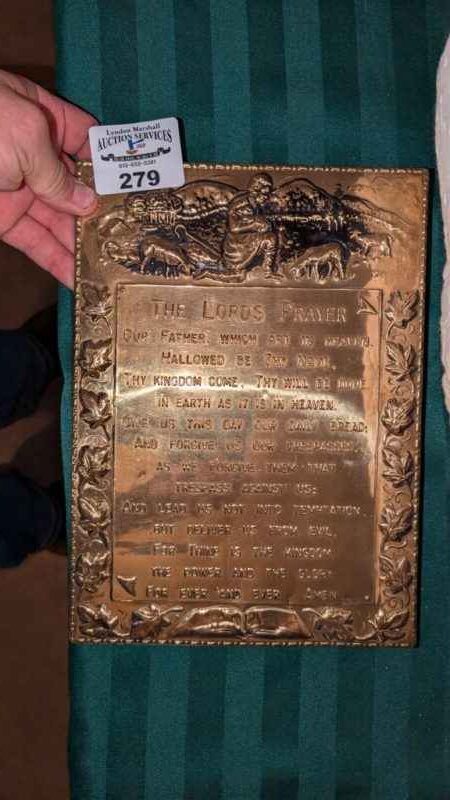 Lyndon Marshall
AUCTION SERVICES
279
THE LORDS PRAYER
OUR FATHER WHICH ART IN HEAVEN,
HALLOWED BE THY NAME,
THY KINGDOM COME, THY WILL BE DONE
IN EARTH AS IT IS IN HEAVEN.
GIVE US THIS DAY OUR DAILY BREAD:
AND FORGIVE US OUR TRESPASSES,
AS WE FORGIVE THEM THAT
TRESPASS AGAINST US:
AND LEAD US NOT INTO TEMPTATION
BUT DELIVER US FROM EVIL,
FOR THINE IS THE KINGDOM
THE POWER AND THE GLORY
FOR EVER AND EVER AMEN